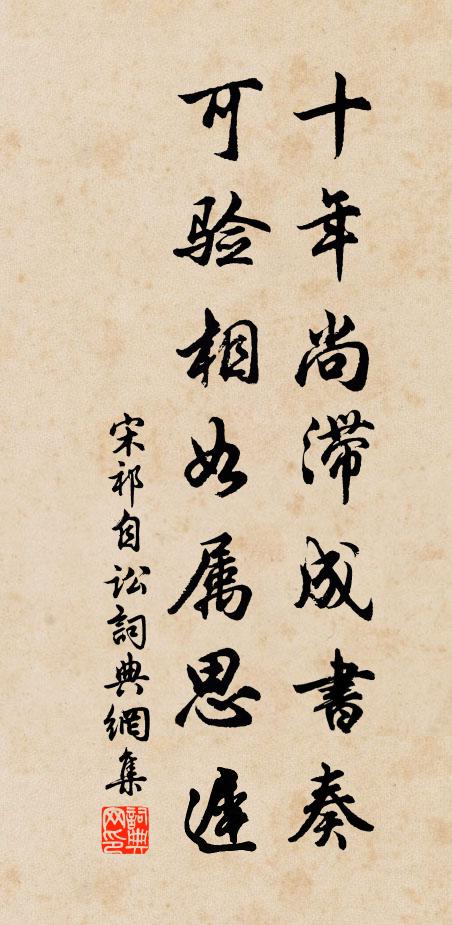 十年尚滞成書奏
可验相如属思遲
宋祁自訟詞典網集
詞典網印